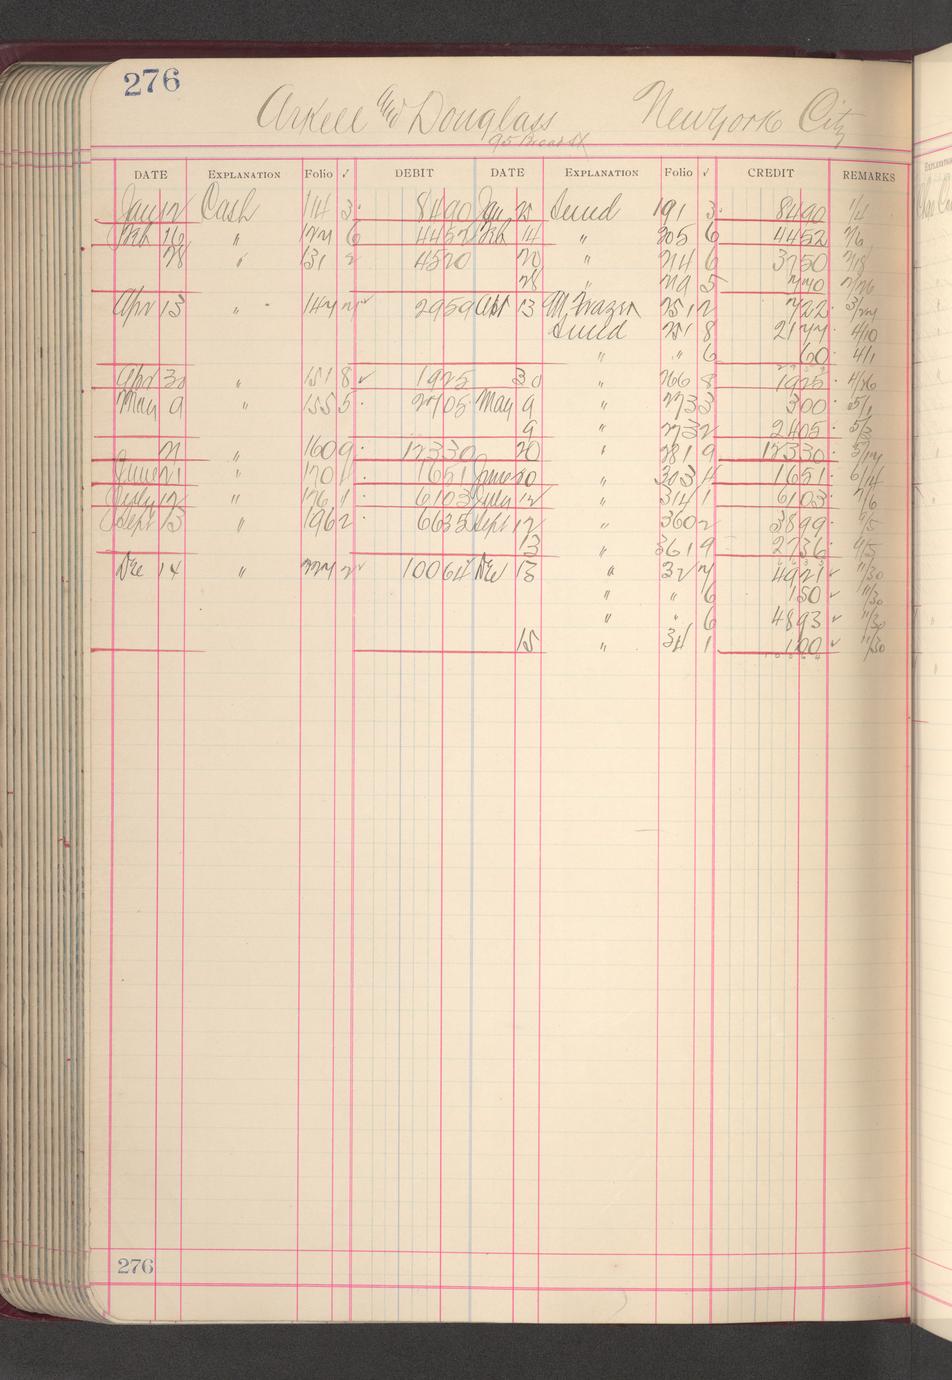 276
Arkell and Douglass New York City
95 Broad St
DATE EXPLANATION Folio √ DEBIT DATE EXPLANATION Folio √ CREDIT REMARKS
Jan 12 Cash 114 3 8490 Jan 25 Sund 191 3 8490 1/4
Feb 16 " 124 6 4452 Feb 14 " 205 6 4452 2/6
28 " 131 2 4520 20 " 214 6 3750 2/18
28 " 219 5 770 2/26
Apr 13 " 147 2959 Apr 13 251 2 722 3/24
Sund 251 8 2177 4/10
" " 6 60 4/1
Apr 30 " 151 8 ✓ 1925 30 " 266 8 1925 4/26
May 9 " 155 5 2705 May 9 " 273 3 300 5/1
9 " 273 2 2405 5/3
21 " 160 9 12330 20 " 281 9 12330 5/14
June 21 " 170 1651 June 20 " 303 4 1651 6/14
July 12 " 176 1 6103 July 12 " 314 1 6103 7/6
Sept 13 " 196 2 6635 Sept 12 " 360 2 3899 9/5
13 " 361 9 2736 9/5
Dec 14 " 227 2 10064 Dec 13 " 32 7 4921 ✓ 11/30
" " 6 150 ✓ 11/30
" " 6 4893 ✓ 11/30
15 " 34 1 100 ✓ 11/30
10064
276